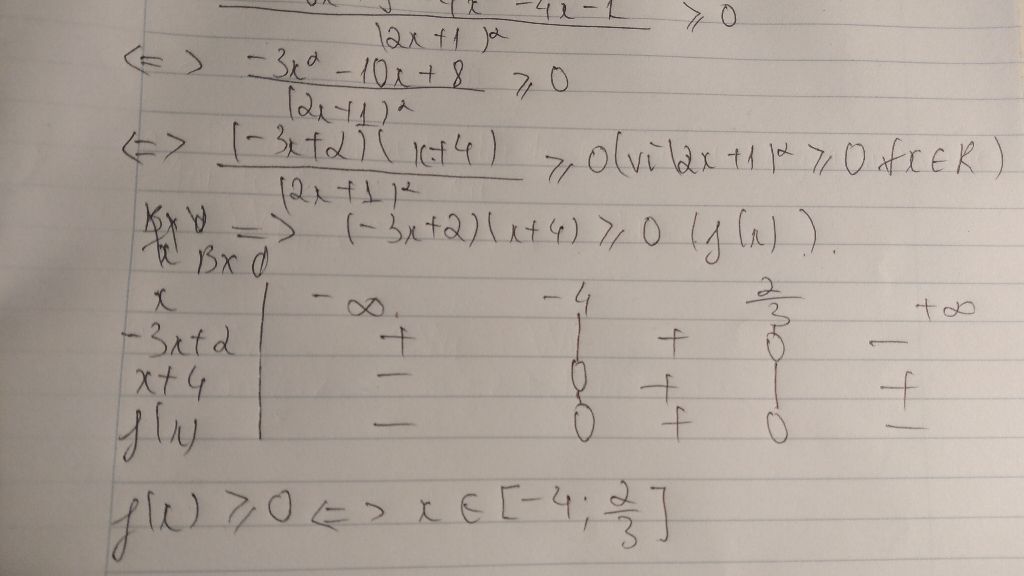 -4x - 1 ≥ 0
(2x+1)²
<=> -3x² - 10x + 8 ≥ 0
(2x+1)²
<=> (-3x+2)(x+4) ≥ 0 (vì (2x+1)² ≥ 0 ∀x∈R)
(2x+1)²
BXD
=> (-3x+2)(x+4) ≥ 0 (f(x)).
x -∞ -4 2/3 +∞
-3x+2 + | + 0 -
x+4 - 0 + | +
f(x) - 0 + 0 -
f(x) ≥ 0 <=> x ∈ [-4; 2/3]